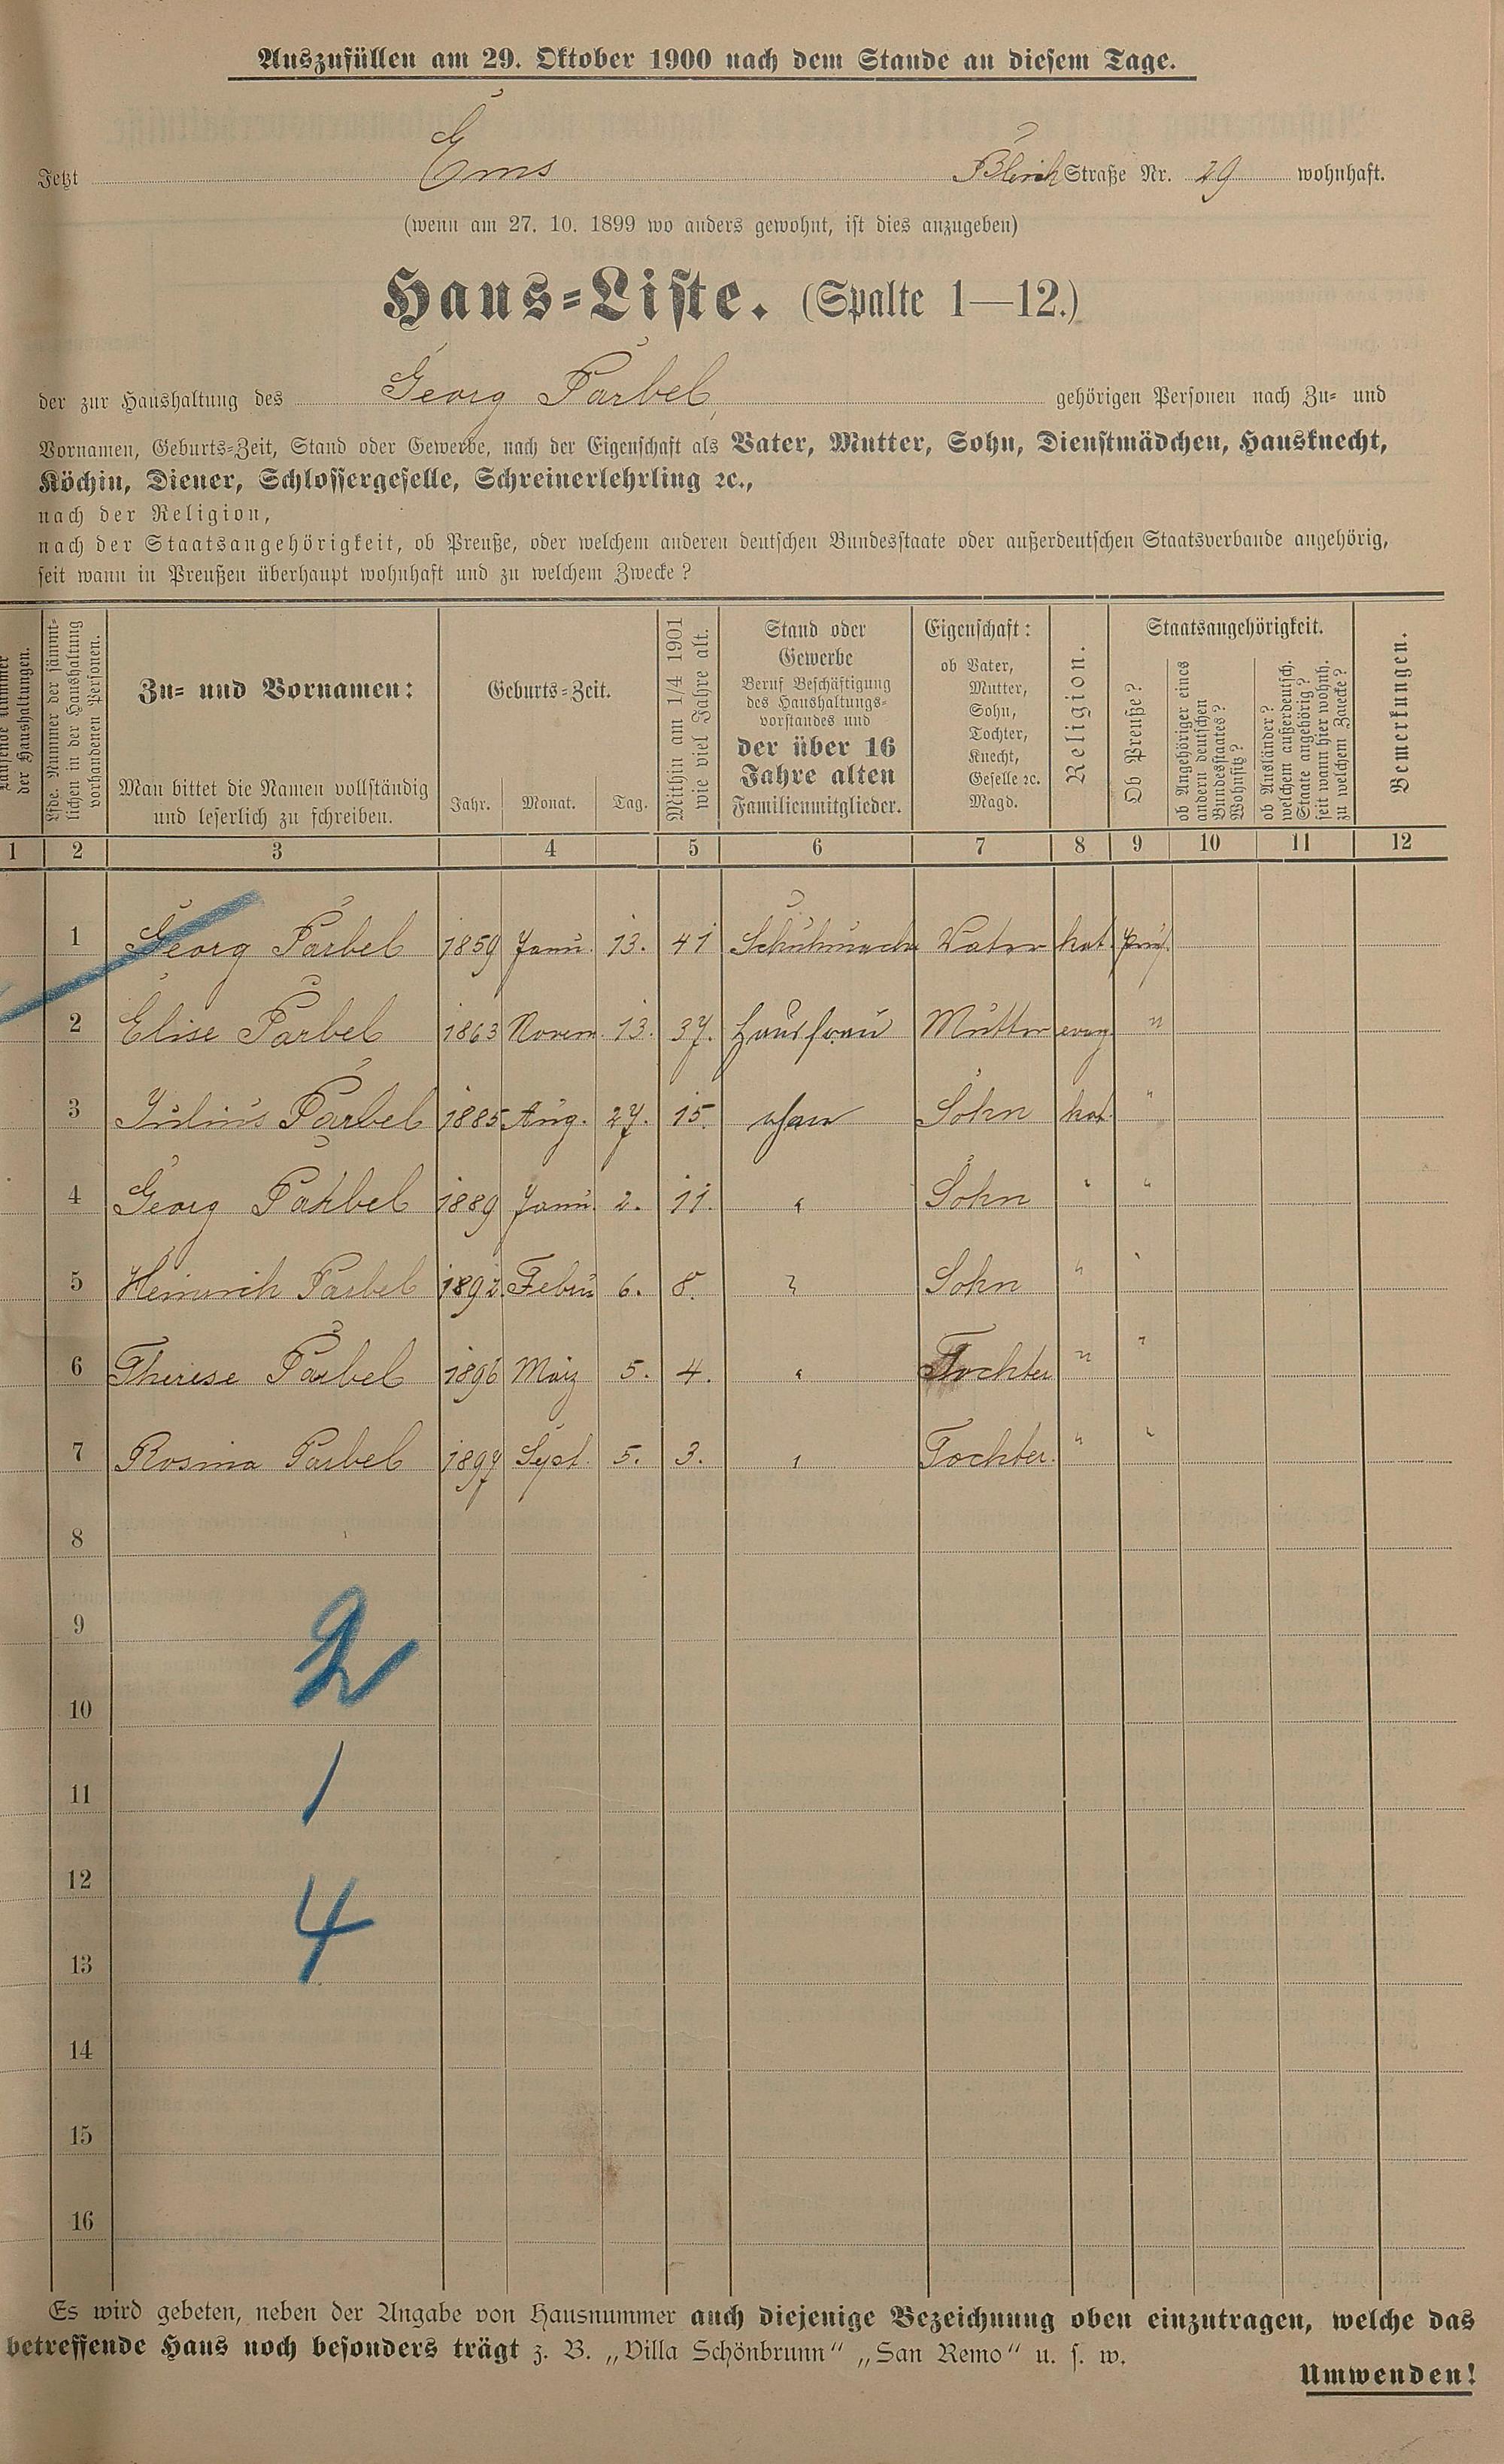 Auszufüllen am 29. Oktober 1900 nach dem Stande an diesem Tage.
Jetzt Ems Bleich Straße Nr. 29 wohnhaft.
(wenn am 27. 10. 1899 wo anders gewohnt, ist dies anzugeben)
Haus-Liste. (Spalte 1—12.)
der zur Haushaltung des Georg Parbel, gehörigen Personen nach Zu- und
Vornamen, Geburts-Zeit, Stand oder Gewerbe, nach der Eigenschaft als Vater, Mutter, Sohn, Dienstmädchen, Hausknecht,
Köchin, Diener, Schlossergeselle, Schreinerlehrling ꝛc.,
nach der Religion,
nach der Staatsangehörigkeit, ob Preuße, oder welchem anderen deutschen Bundesstaate oder außerdeutschen Staatsverbande angehörig,
seit wann in Preußen überhaupt wohnhaft und zu welchem Zwecke?
der Haushaltungen.
Lfde. Nummer der sämmt-
lichen in der Haushaltung
vorhandenen Personen.
Zu- und Vornamen:
Man bittet die Namen vollständig
und leserlich zu schreiben.
Geburts-Zeit.
Jahr. Monat. Tag.
Mithin am 1/4 1901
wie viel Jahre alt.
Stand oder
Gewerbe
Beruf Beschäftigung
des Haushaltungs-
vorstandes und
der über 16
Jahre alten
Familienmitglieder.
Eigenschaft:
ob Vater,
Mutter,
Sohn,
Tochter,
Knecht,
Geselle ꝛc.
Magd.
Religion.
Staatsangehörigkeit.
Ob Preuße?
ob Angehöriger eines
andern deutschen
Bundesstaates?
Wohnsitz?
ob Ausländer?
welchem außerdeutsch.
Staate angehörig?
seit wann hier wohnh.
zu welchem Zwecke?
Bemerkungen.
1 2 3 4 5 6 7 8 9 10 11 12
1 Georg Parbel 1859 Janu. 13. 41 Schuhmacher Vater kat. preuß.
2 Elise Parbel 1863 Novem. 13. 37. Hausfrau Mutter evang. "
3 Julius Parbel 1885 Aug. 27. 15. ohne Sohn kat. "
4 Georg Parbel 1889 Janu. 2. 11. " Sohn " "
5 Heinrich Parbel 1892. Febru 6. 8. " Sohn " "
6 Therese Parbel 1896 März 5. 4. " Tochter " "
7 Rosina Parbel 1897 Sept. 5. 3. " Tochter. " "
8
9
2
10
11
1
12
4
13
14
15
16
Es wird gebeten, neben der Angabe von Hausnummer auch diejenige Bezeichnung oben einzutragen, welche das
betreffende Haus noch besonders trägt z. B. „Villa Schönbrunn" „San Remo" u. s. w.
Umwenden!